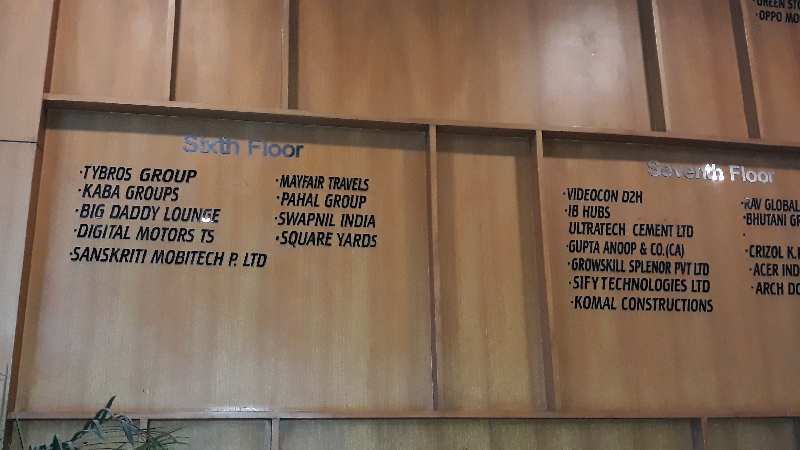 GREEN
·OPPO
Sixth Floor
·TYBROS GROUP
·KABA GROUPS
·BIG DADDY LOUNGE
·DIGITAL MOTORS TS
·SANSKRITI MOBITECH P. LTD
·MAYFAIR TRAVELS
·PAHAL GROUP
·SWAPNIL INDIA
·SQUARE YARDS
Seventh Floor
·VIDEOCON D2H
·IB HUBS
ULTRATECH CEMENT LTD
·GUPTA ANOOP & CO.(CA)
·GROWSKILL SPLENOR PVT LTD
·SIFY TECHNOLOGIES LTD
·KOMAL CONSTRUCTIONS
·RAV GLOBAL
·BHUTANI
·
·CRIZOL K.
·ACER IND
·ARCH